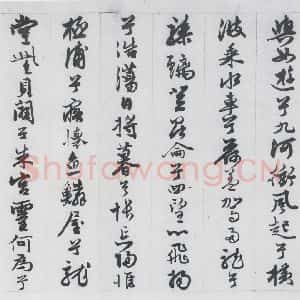 與女遊兮九河衝風起兮橫
波乘水車兮荷蓋駕兩龍兮
驂螭登崑崙兮四望心飛揚
兮浩蕩日將暮兮悵忘歸惟
極浦兮寤懷魚鱗屋兮龍
堂紫貝闕兮朱宮靈何為兮
Shufawang.CN